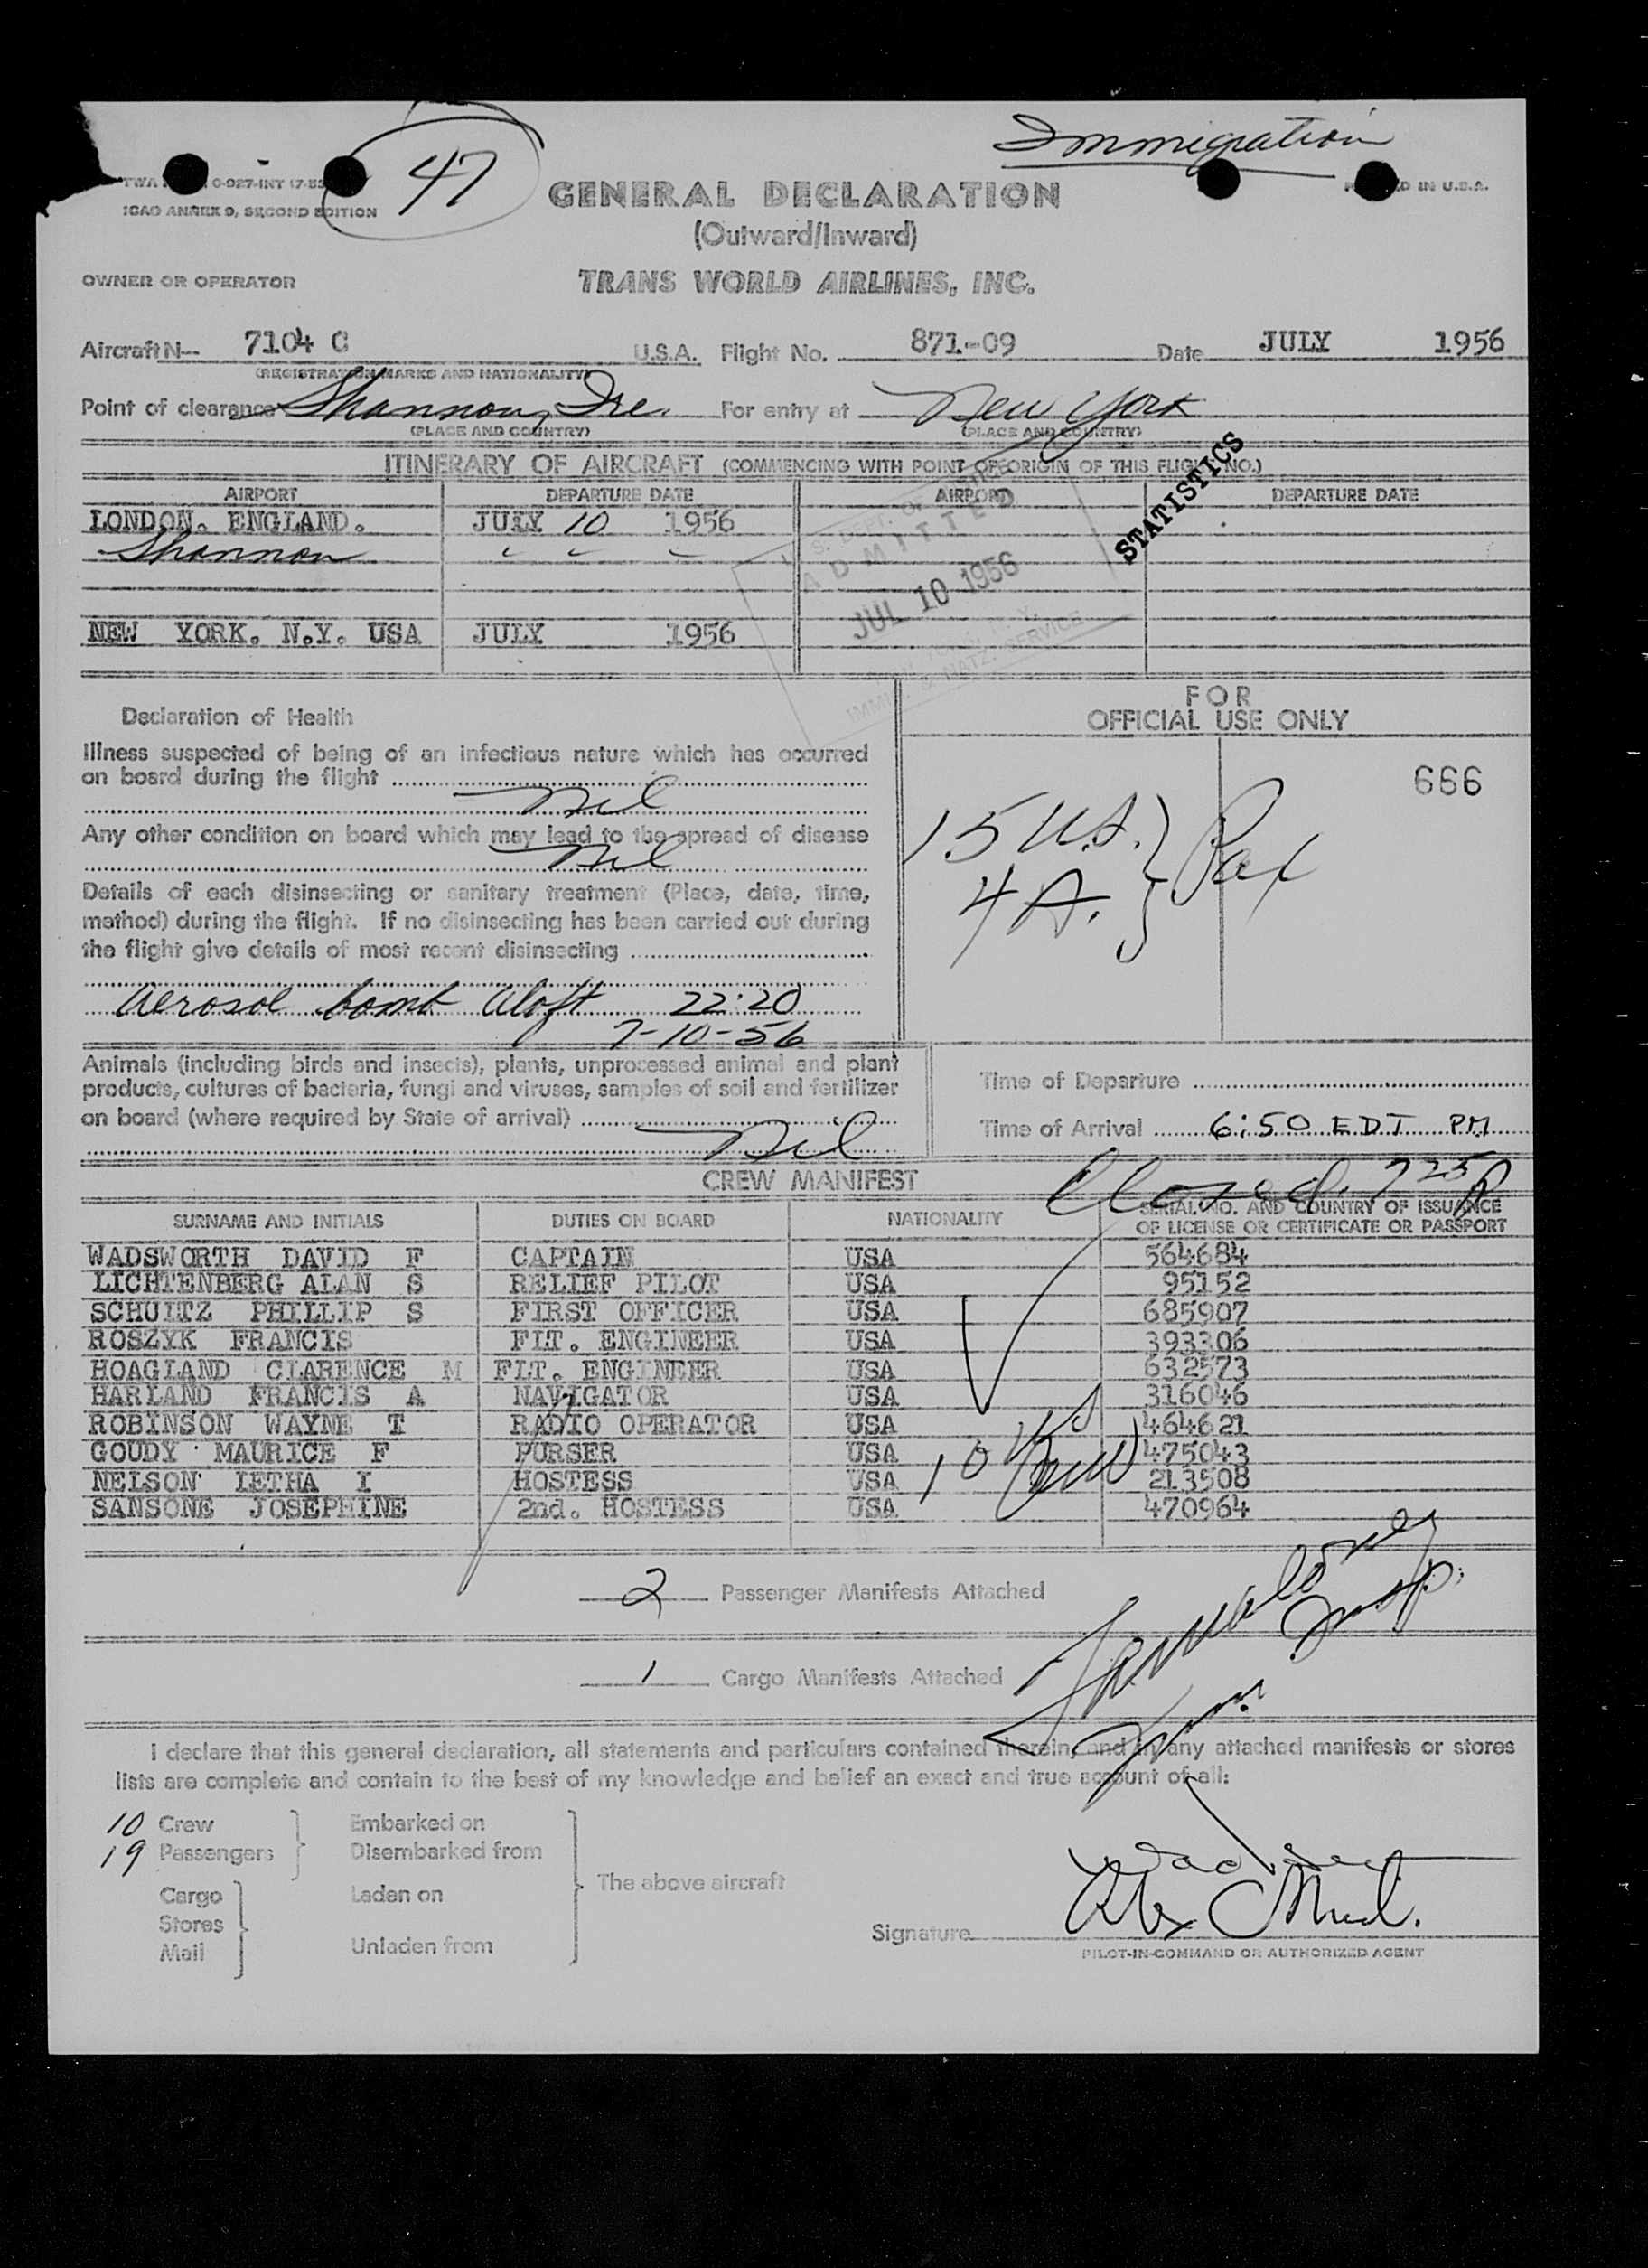 Immigration
47
TWA C-927-INT (7-5
IN U.S.A.
ICAO ANNEX 9, SECOND EDITION
GENERAL DECLARATION
(Outward/Inward)
OWNER OR OPERATOR TRANS WORLD AIRLINES, INC.
Aircraft N-- 7104 C U.S.A. Flight No. 871-09 Date JULY 1956
(REGISTRATION MARKS AND NATIONALITY)
Point of clearance Shannon, Ire. For entry at New York
(PLACE AND COUNTRY) (PLACE AND COUNTRY)
STATISTICS
ITINERARY OF AIRCRAFT (COMMENCING WITH POINT OF ORIGIN OF THIS FLIGHT NO.)
AIRPORT DEPARTURE DATE AIRPORT DEPARTURE DATE
LONDON. ENGLAND. JULY 10 1956
Shannon " " "
NEW YORK. N.Y. USA JULY 1956
U. S. DEPT. OF
ADMITTED
JUL 10 1956
IMMI. & NATZ. SERVICE
Declaration of Health
Illness suspected of being of an infectious nature which has occurred
on board during the flight
Nil
Any other condition on board which may lead to the spread of disease
Nil
Details of each disinsecting or sanitary treatment (Place, date, time,
method) during the flight. If no disinsecting has been carried out during
the flight give details of most recent disinsecting
Aerosol bomb aloft 22:20
7-10-56
FOR
OFFICIAL USE ONLY
666
15 U.S. } Pax
4 A.
Animals (including birds and insects), plants, unprocessed animal and plant
products, cultures of bacteria, fungi and viruses, samples of soil and fertilizer
on board (where required by State of arrival)
Nil
Time of Departure
Time of Arrival 6:50 EDT PM
Closed. 725P
CREW MANIFEST
SURNAME AND INITIALS DUTIES ON BOARD NATIONALITY SERIAL NO. AND COUNTRY OF ISSUANCE
OF LICENSE OR CERTIFICATE OR PASSPORT
WADSWORTH DAVID F CAPTAIN USA 564684
LICHTENBERG ALAN S RELIEF PILOT USA 95152
SCHULTZ PHILLIP S FIRST OFFICER USA 685907
ROSZYK FRANCIS FLT. ENGINEER USA 393306
HOAGLAND CLARENCE M FLT. ENGINEER USA 632573
HARLAND FRANCIS A NAVIGATOR USA 316046
ROBINSON WAYNE T RADIO OPERATOR USA 464621
GOUDY MAURICE F PURSER USA 475043
NELSON LETHA I HOSTESS USA 213508
SANSONE JOSEPHINE 2nd. HOSTESS USA 470964
10 US Crew
2 Passenger Manifests Attached
1 Cargo Manifests Attached
Imm. Insp.
I declare that this general declaration, all statements and particulars contained therein, and in any attached manifests or stores
lists are complete and contain to the best of my knowledge and belief an exact and true account of all:
10 Crew Embarked on
19 Passengers Disembarked from
The above aircraft
Cargo Laden on
Stores
Mail Unladen from
Signature
PILOT-IN-COMMAND OR AUTHORIZED AGENT